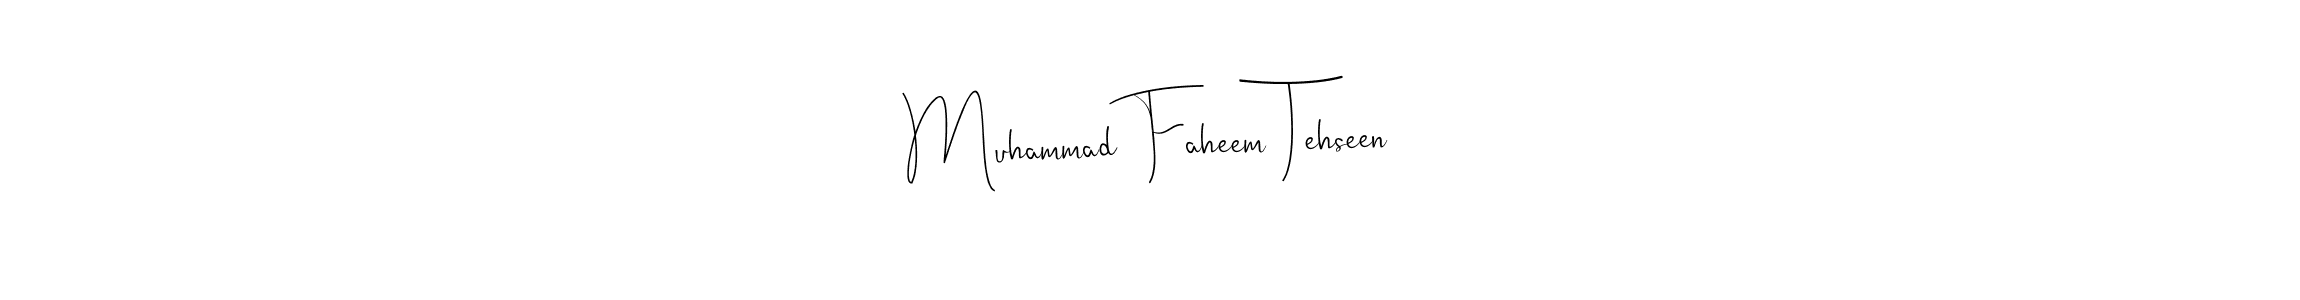 Muhammad Faheem Tehseen